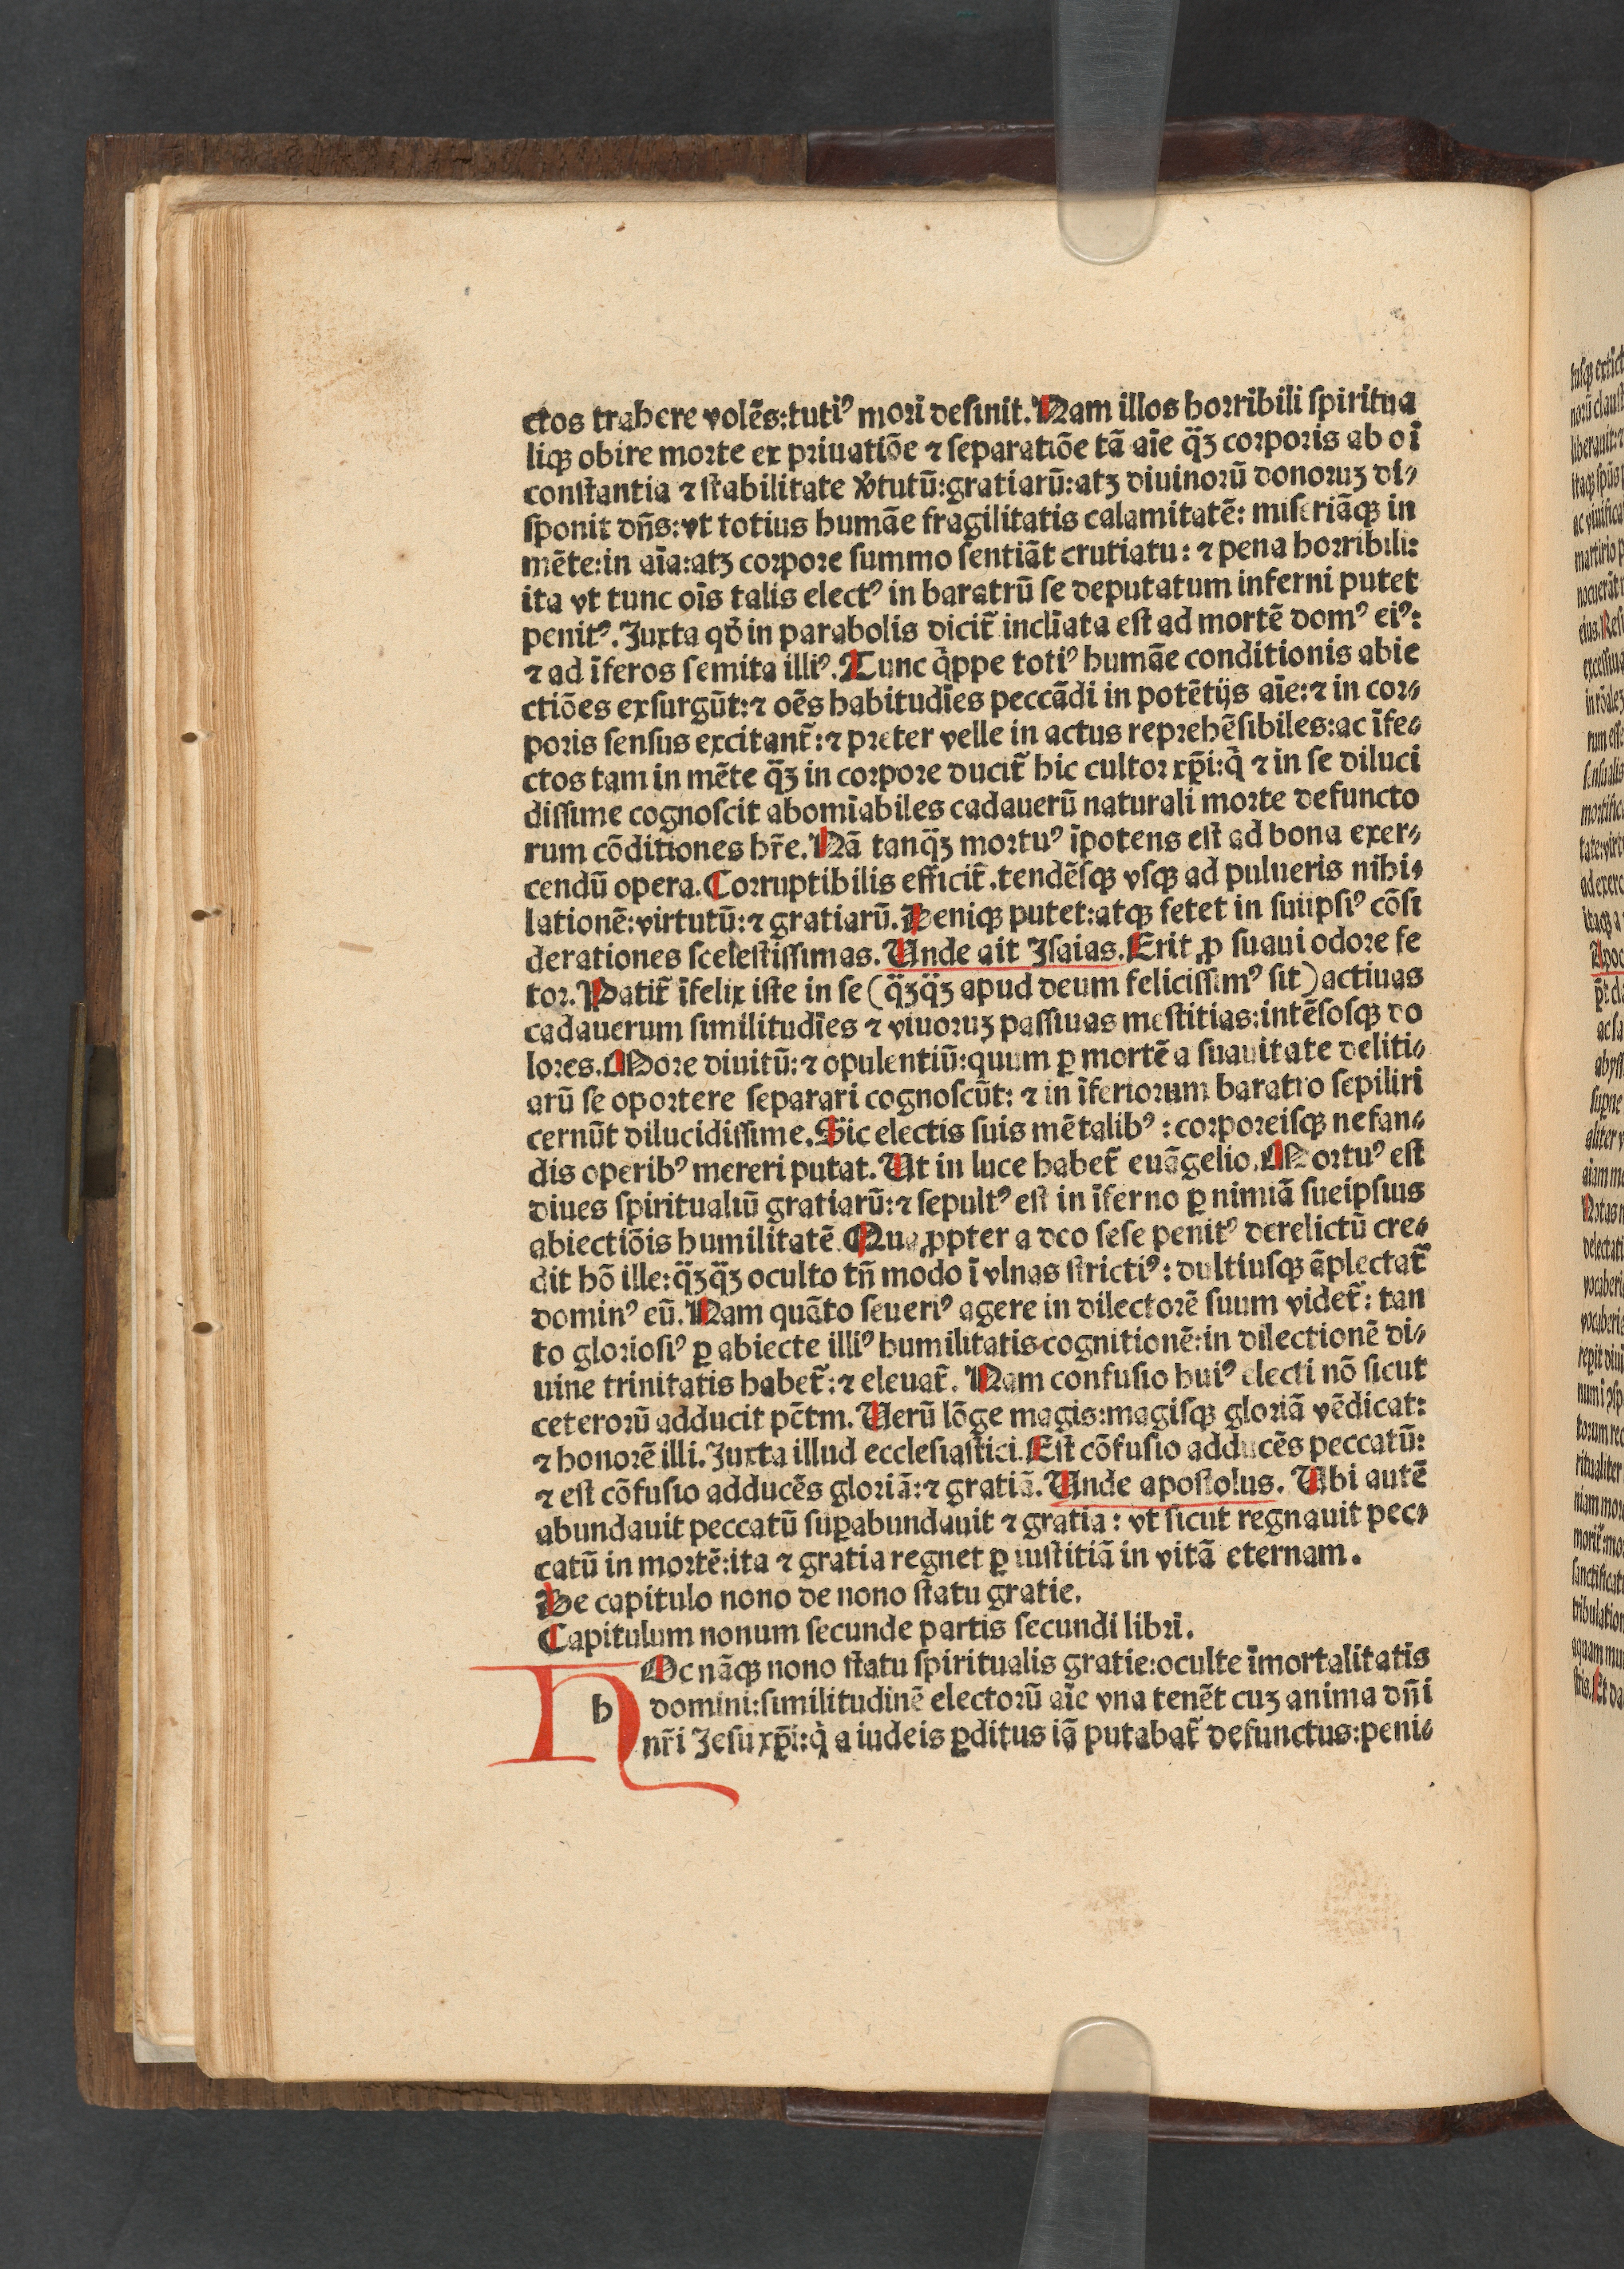 ctos trahere volēs:tutiꝰ mori desinit. Nam illos horribili spiritua
liqꝫ obire morte ex priuatiōe ⁊ separatiōe tā aīe q̄ꝫ corporis ab oī
constantia ⁊ stabilitate v̓tutū:gratiarū:atꝫ diuinorū donoruꝫ di⸗
sponit dn̄s:vt totius humāe fragilitatis calamitatē: miseriāqꝫ in
mēte:in aīa:atꝫ corpore summo sentiāt crutiatu: ⁊ pena horribili:
ita vt tunc oīs talis electꝰ in baratrū se deputatum inferni putet
penitꝰ. Juxta qd̓ in parabolis dicit̄ inclīata est ad mortē domꝰ eiꝰ:
⁊ ad īferos semita illiꝰ. Tunc q̓ppe totiꝰ humāe conditionis abie
ctiōes exsurgūt:⁊ oēs habitudīes peccādi in potētijs aīe:⁊ in cor⸗
poris sensus excitant̄:⁊ preter velle in actus reprehēsibiles:ac īfe⸗
ctos tam in mēte q̄ꝫ in corpore ducit̄ hic cultor xp̄i:q̓ ⁊ in se diluci
dissime cognoscit abomīabiles cadauerū naturali morte defuncto
rum cōditiones hr̄e. Nā tanq̄ꝫ mortuꝰ īpotens est ad bona exer⸗
cendū opera. Corruptibilis efficit̄.tendēsqꝫ vsqꝫ ad pulueris nihi⸗
lationē:virtutū:⁊ gratiarū. Deniqꝫ putet:atqꝫ fetet in suiipsiꝰ cōsi
derationes scelestissimas. Unde ait Isaias. Erit ꝓ suaui odore fe
tor. Patit̄ īfelix iste in se (q̄ꝫq̄ꝫ apud deum felicissimꝰ sit) actiuas
cadauerum similitudīes ⁊ viuoruꝫ passiuas mestitias:intēsosqꝫ do
lores. More diuitū:⁊ opulentiū:quum ꝑ mortē a suauitate deliti⸗
arū se oportere separari cognoscūt: ⁊ in īferiorum baratro sepiliri
cernūt dilucidissime. Sic electis suis mētalibꝰ : corporeisqꝫ nefan⸗
dis operibꝰ mereri putat. Ut in luce habet̄ euāgelio. Mortuꝰ est
diues spiritualiū gratiarū:⁊ sepultꝰ est in īferno ꝑ nimiā sueipsius
abiectiōis humilitatē. Quaꝓpter a deo sese penitꝰ derelictū cre⸗
dit hō ille:q̄ꝫq̄ꝫ oculto tn̄ modo ī vlnas strictiꝰ: dultiusqꝫ āplectat̄
dominꝰ eū. Nam quāto seueriꝰ agere in dilectorē suum videt̄: tan
to gloriosiꝰ ꝑ abiecte illiꝰ humilitatis cognitionē:in dilectionē di⸗
uine trinitatis habet̄:⁊ eleuat̄. Nam confusio huiꝰ electi nō sicut
ceterorū adducit pc̄tm. Uerū lōge magis:magisqꝫ gloriā vēdicat:
⁊ honorē illi. Juxta illud ecclesiastici. Est cōfusio adducēs peccatū:
⁊ est cōfusio adducēs gloriā:⁊ gratiā. Unde apostolus. Ubi autē
abundauit peccatū suꝑabundauit ⁊ gratia: vt sicut regnauit pec⸗
catū in mortē:ita ⁊ gratia regnet ꝑ iustitiā in vitā eternam.
De capitulo nono de nono statu gratie.
Capitulum nonum secunde partis secundi libri.
h Oc nāqꝫ nono statu spiritualis gratie:oculte īmortalitatis
domini:similitudinē electorū aīe vna tenēt cuꝫ anima dn̄i
nr̄i Jesu xp̄i:q̓ a iudeis ꝑditus iā putabat̄ defunctus:peni⸗